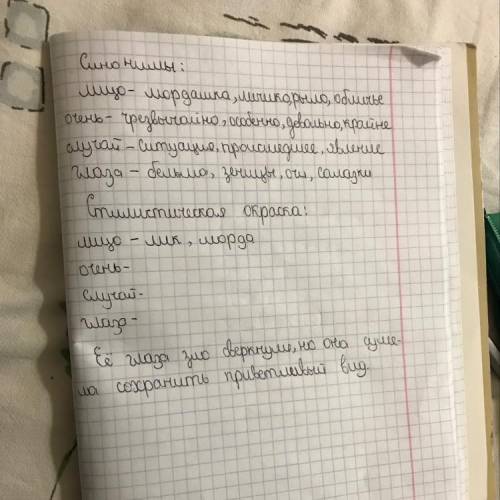 Синонимы:
лицо- мордашка, личико, рыло, обличье
очень- чрезвычайно, особенно, довольно, крайне
случай- ситуация, происшедшее, явление
глаза- бельма, зеницы, очи,
Стилистическая окраска:
лицо - лик, морда
очень-
случай-
глаза-
Её глаза зло сверкнули, но она суме-
ла сохранить приветливый вид.